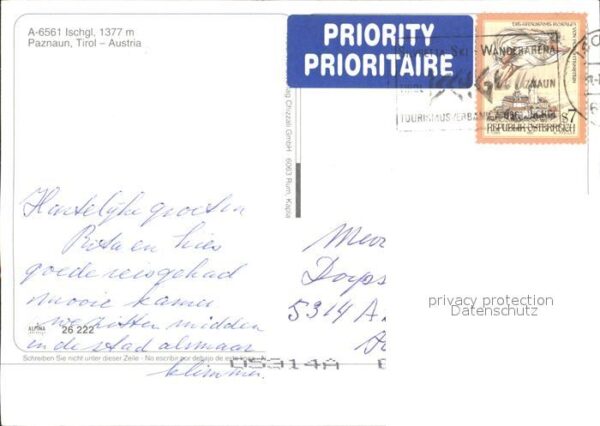 A-6561 Ischgl, 1377 m
Paznaun, Tirol – Austria
PRIORITY
PRIORITAIRE
WANDERARENA
PAZNAUN
TIROL
TOURISMUSVERBAND A-6561 Ischgl
REPUBLIK ÖSTERREICH
S7
Chizzali GmbH 6063 Rum, Kapla
Hartelijke groeten
en
goede reis gehad
mooie kamer
we zitten midden
in de stad alsmaar
klimmen.
Mevr
Dorps
5314 A
privacy protection
Datenschutz
ALPINA
26 222
Schreiben Sie nicht unter dieser Zeile - No escribir por debajo de esta
05314A